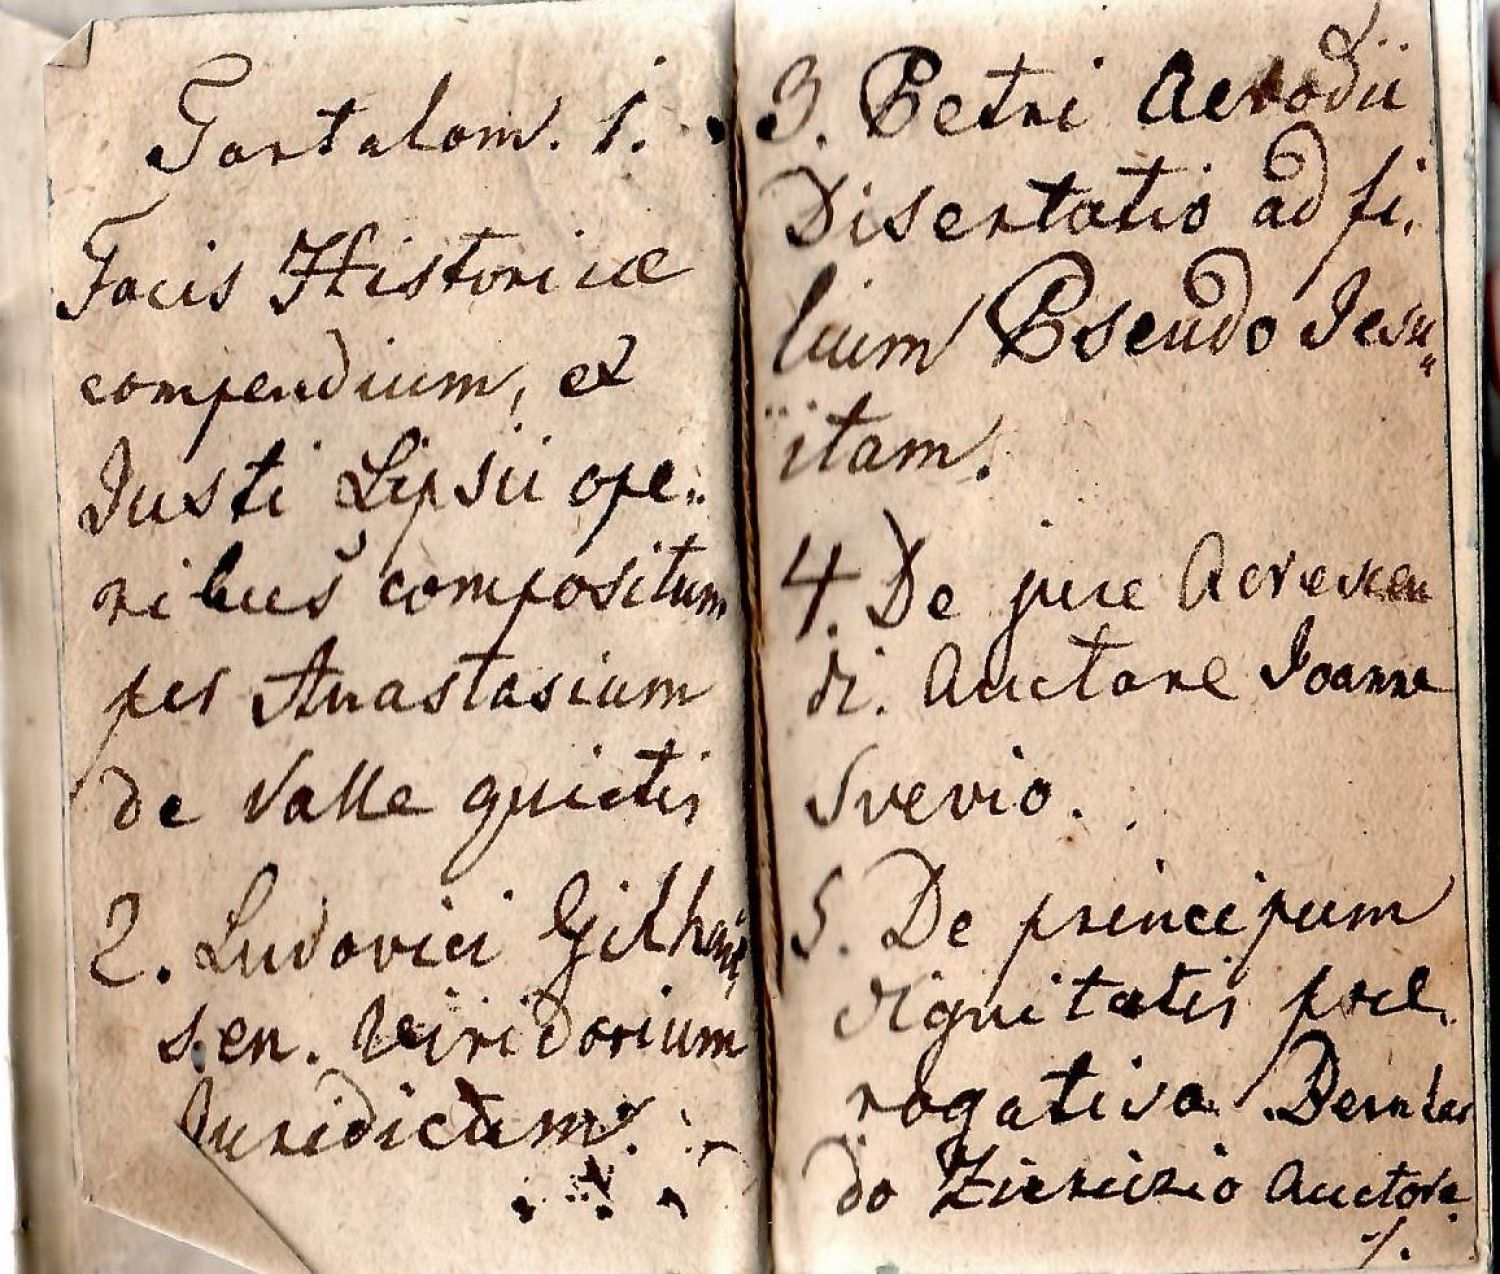 Tartalom. 1.
Facis Historicæ
compendium, ex
Justi Lipsii ope„
ribus compositum
per Anastasium
de Valle quietis
2. Ludovici Gilhau„
sen. Viridarium
Juridicum.
3. Petri Aerodii
Disertatio ad fi„
lium Pseudo Jesu„
itam.
4. De jure Acrescen
di. Auctore Joanne
Svevio.
5. De principum
dignitatis præ„
rogativa. Bernhar
do Zieritzio Auctore